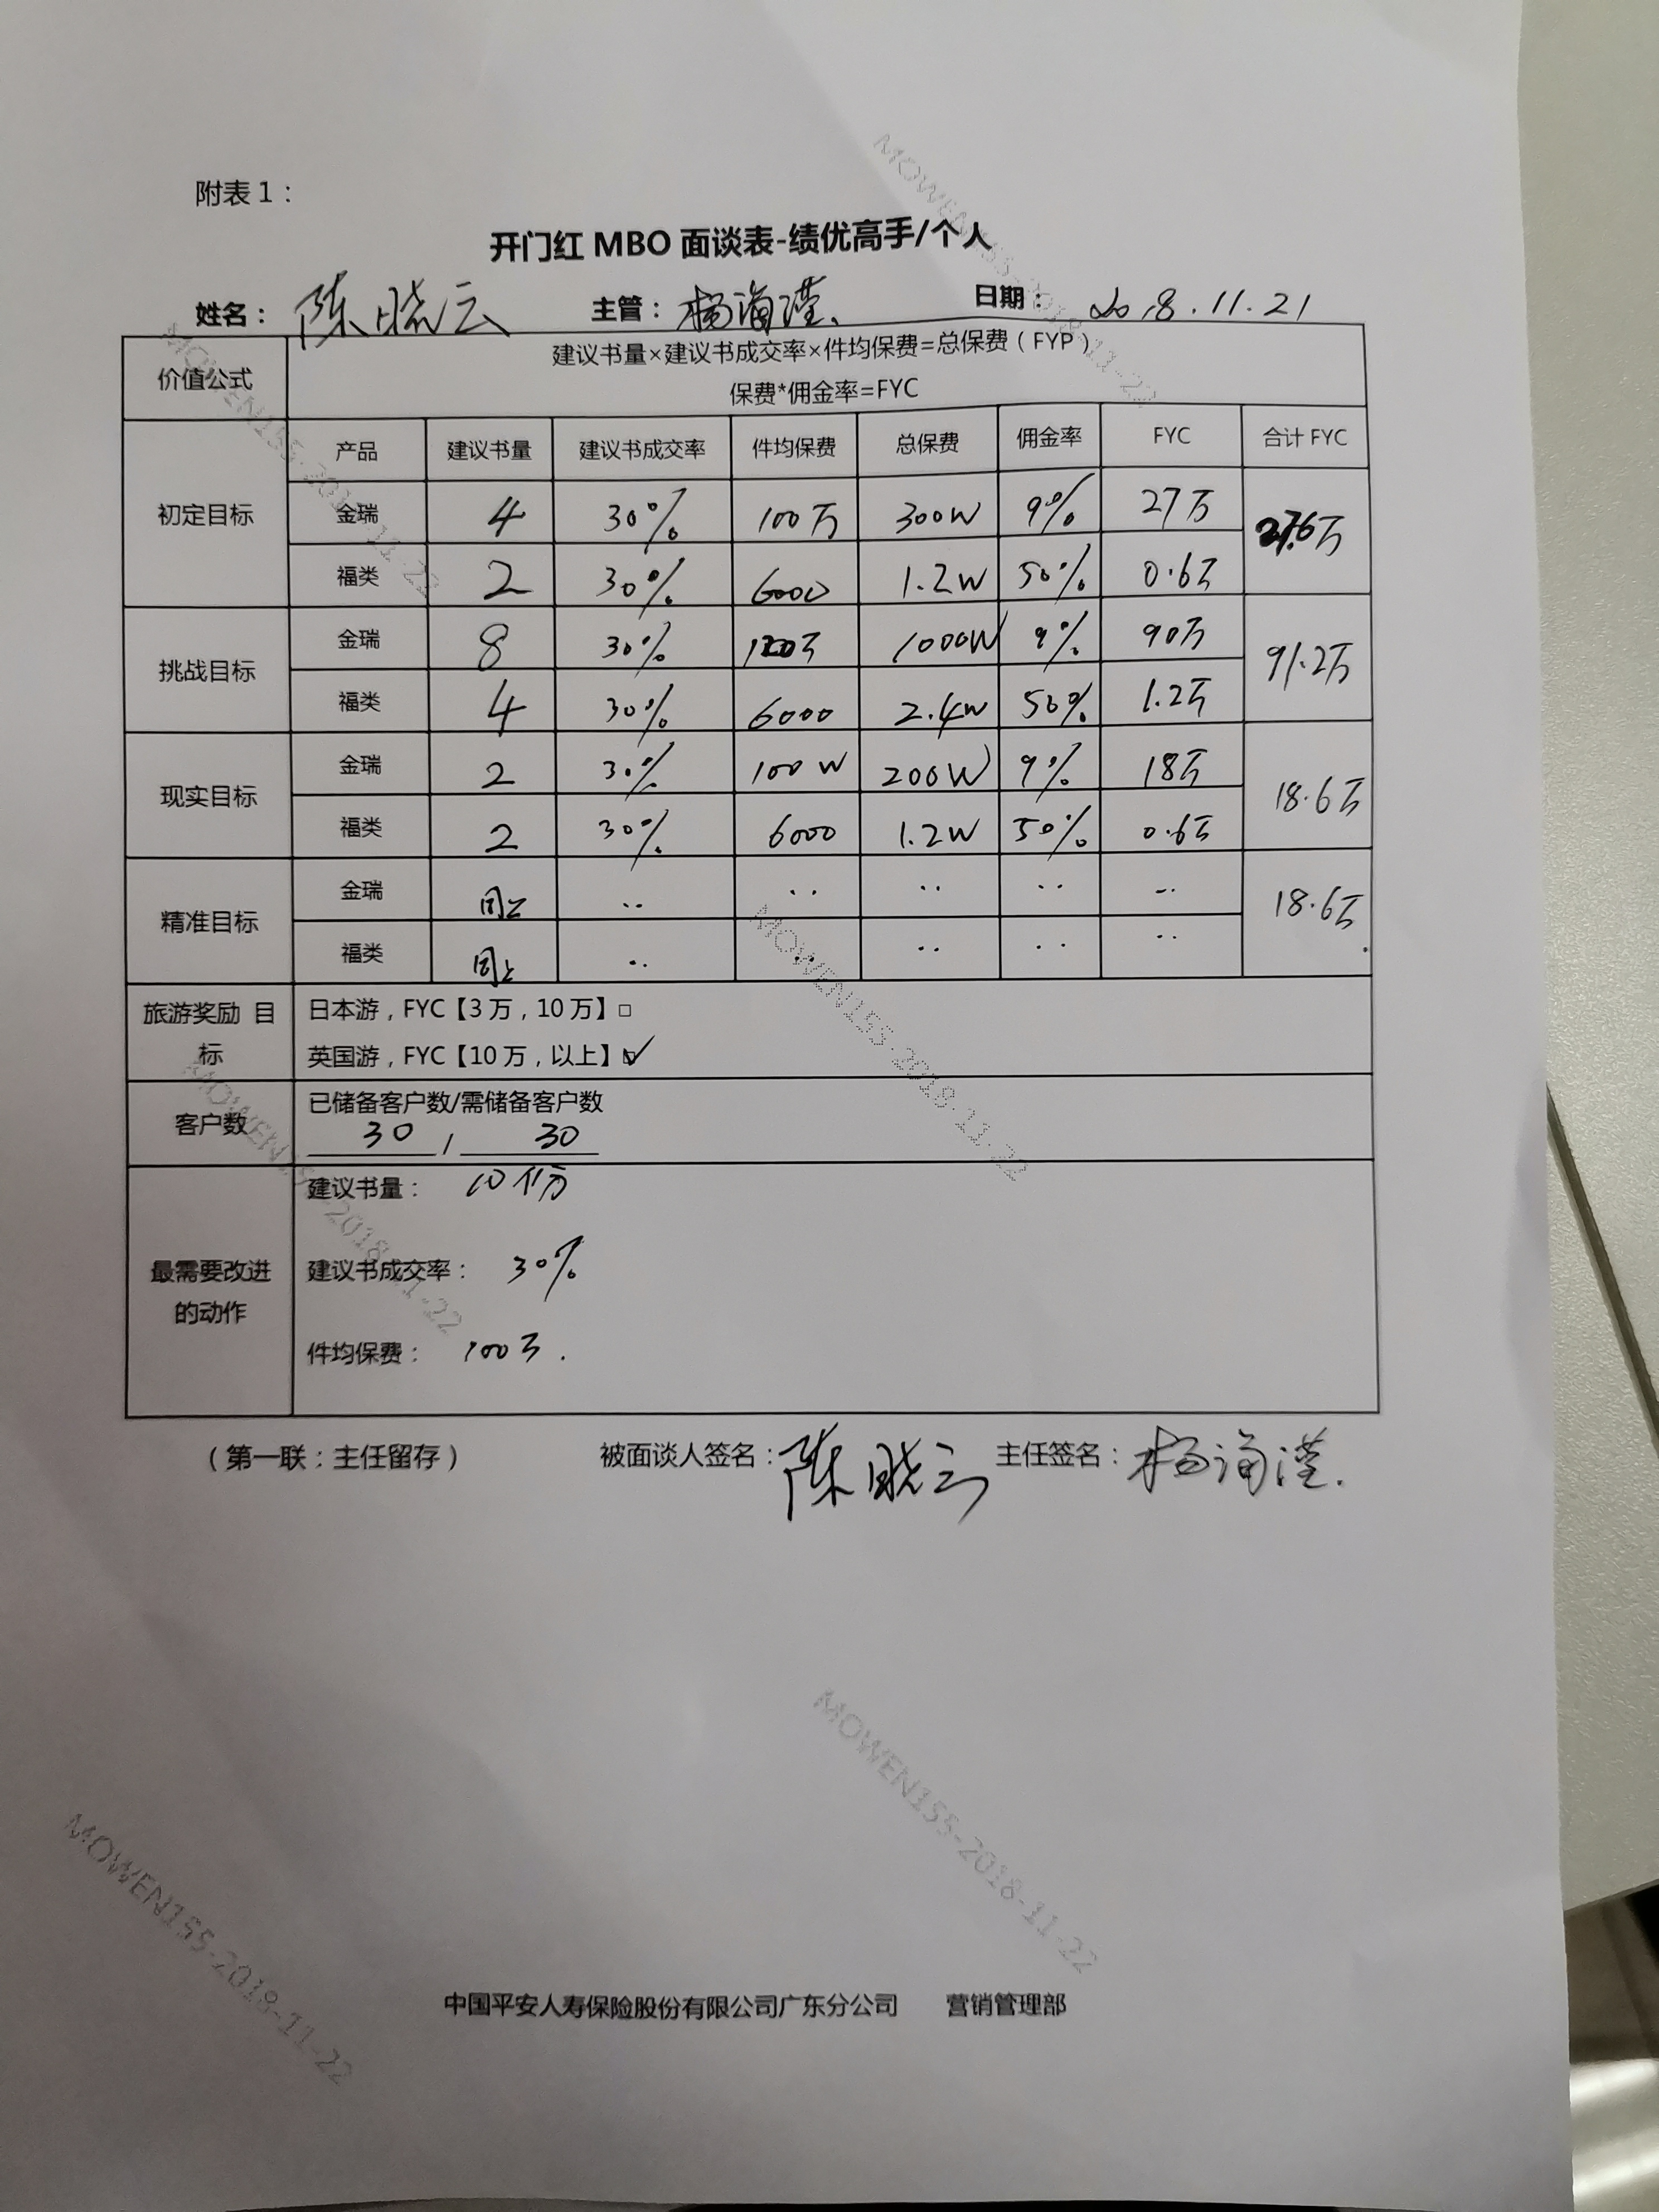 附表1：
开门红 MBO 面谈表-绩优高手/个人
姓名： 陈晓云 主管： 杨海滢 日期： 2018.11.21
价值公式 建议书量×建议书成交率×件均保费=总保费（FYP）
保费*佣金率=FYC
产品 建议书量 建议书成交率 件均保费 总保费 佣金率 FYC 合计 FYC
初定目标 金瑞 4 30% 100万 300W 9% 27万 27.6万
福类 2 30% 6000 1.2W 50% 0.6万
挑战目标 金瑞 8 30% 万 1000W 9% 90万 91.2万
福类 4 30% 6000 2.4W 50% 1.2万
现实目标 金瑞 2 30% 100W 200W 9% 18万 18.6万
福类 2 30% 6000 1.2W 50% 0.6万
精准目标 金瑞 同上 ·· ·· ·· ·· ·· 18.6万
福类 同上 ·· ·· ·· ·· ··
旅游奖励 目标 日本游，FYC【3万，10万】□
英国游，FYC【10万，以上】☑
客户数 已储备客户数/需储备客户数
30 / 30
最需要改进的动作 建议书量： 10份
建议书成交率： 30%
件均保费： 100万.
（第一联：主任留存） 被面谈人签名：陈晓云 主任签名：杨海滢.
中国平安人寿保险股份有限公司广东分公司 营销管理部
MOWEN155-2018-11-22
MOWEN155-2018-11-22
MOWEN155-2018-11-22
MOWEN155-2018-11-22
MOWEN155-2018-11-22
MOWEN155-2018-11-22